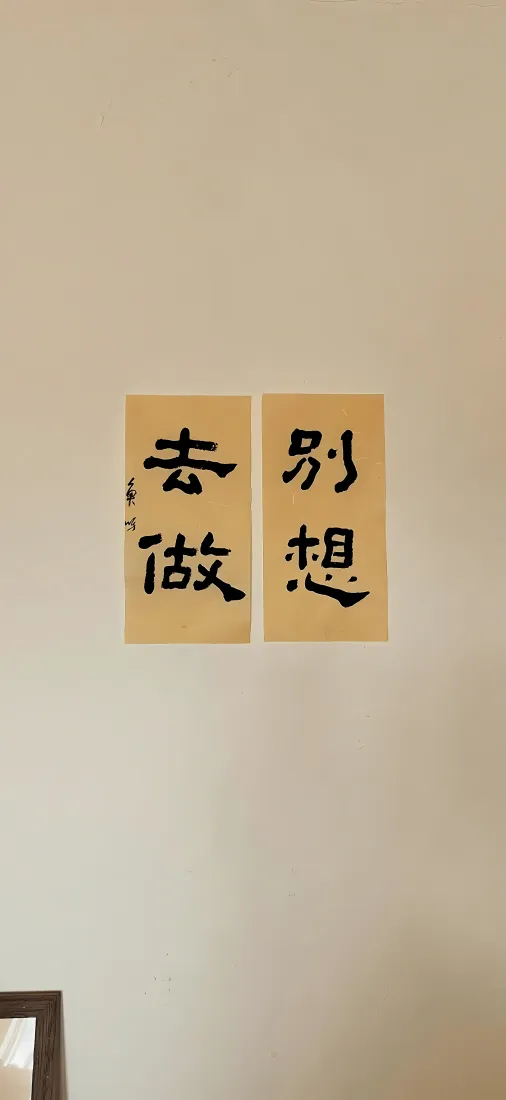 别想
去做